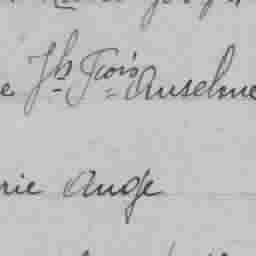 e Jh Frois Anselme
rie Ange